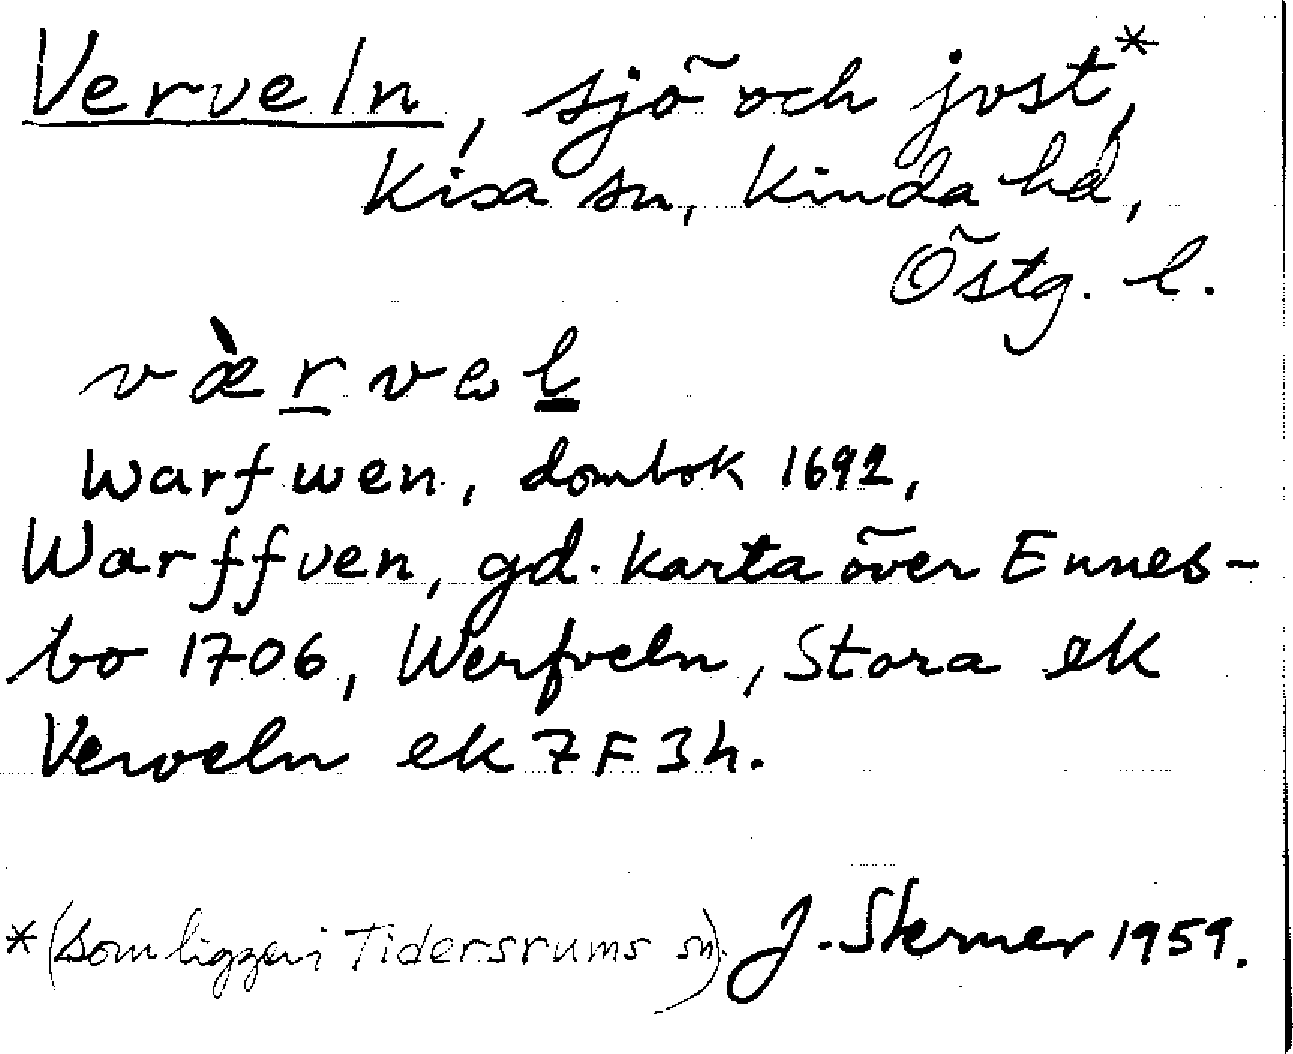 Verveln, sjö och jvst,*
Kisa sn, Kinda hd,
Östg. l.
væ̀rvel
Warfwen, dombok 1692,
Warffven, gd. karta över Ennes-
bo 1706, Werfveln, Stora ek
Verveln ek 7F3h.
*(som ligger i Tidersrums sn). J. Sterner 1959.